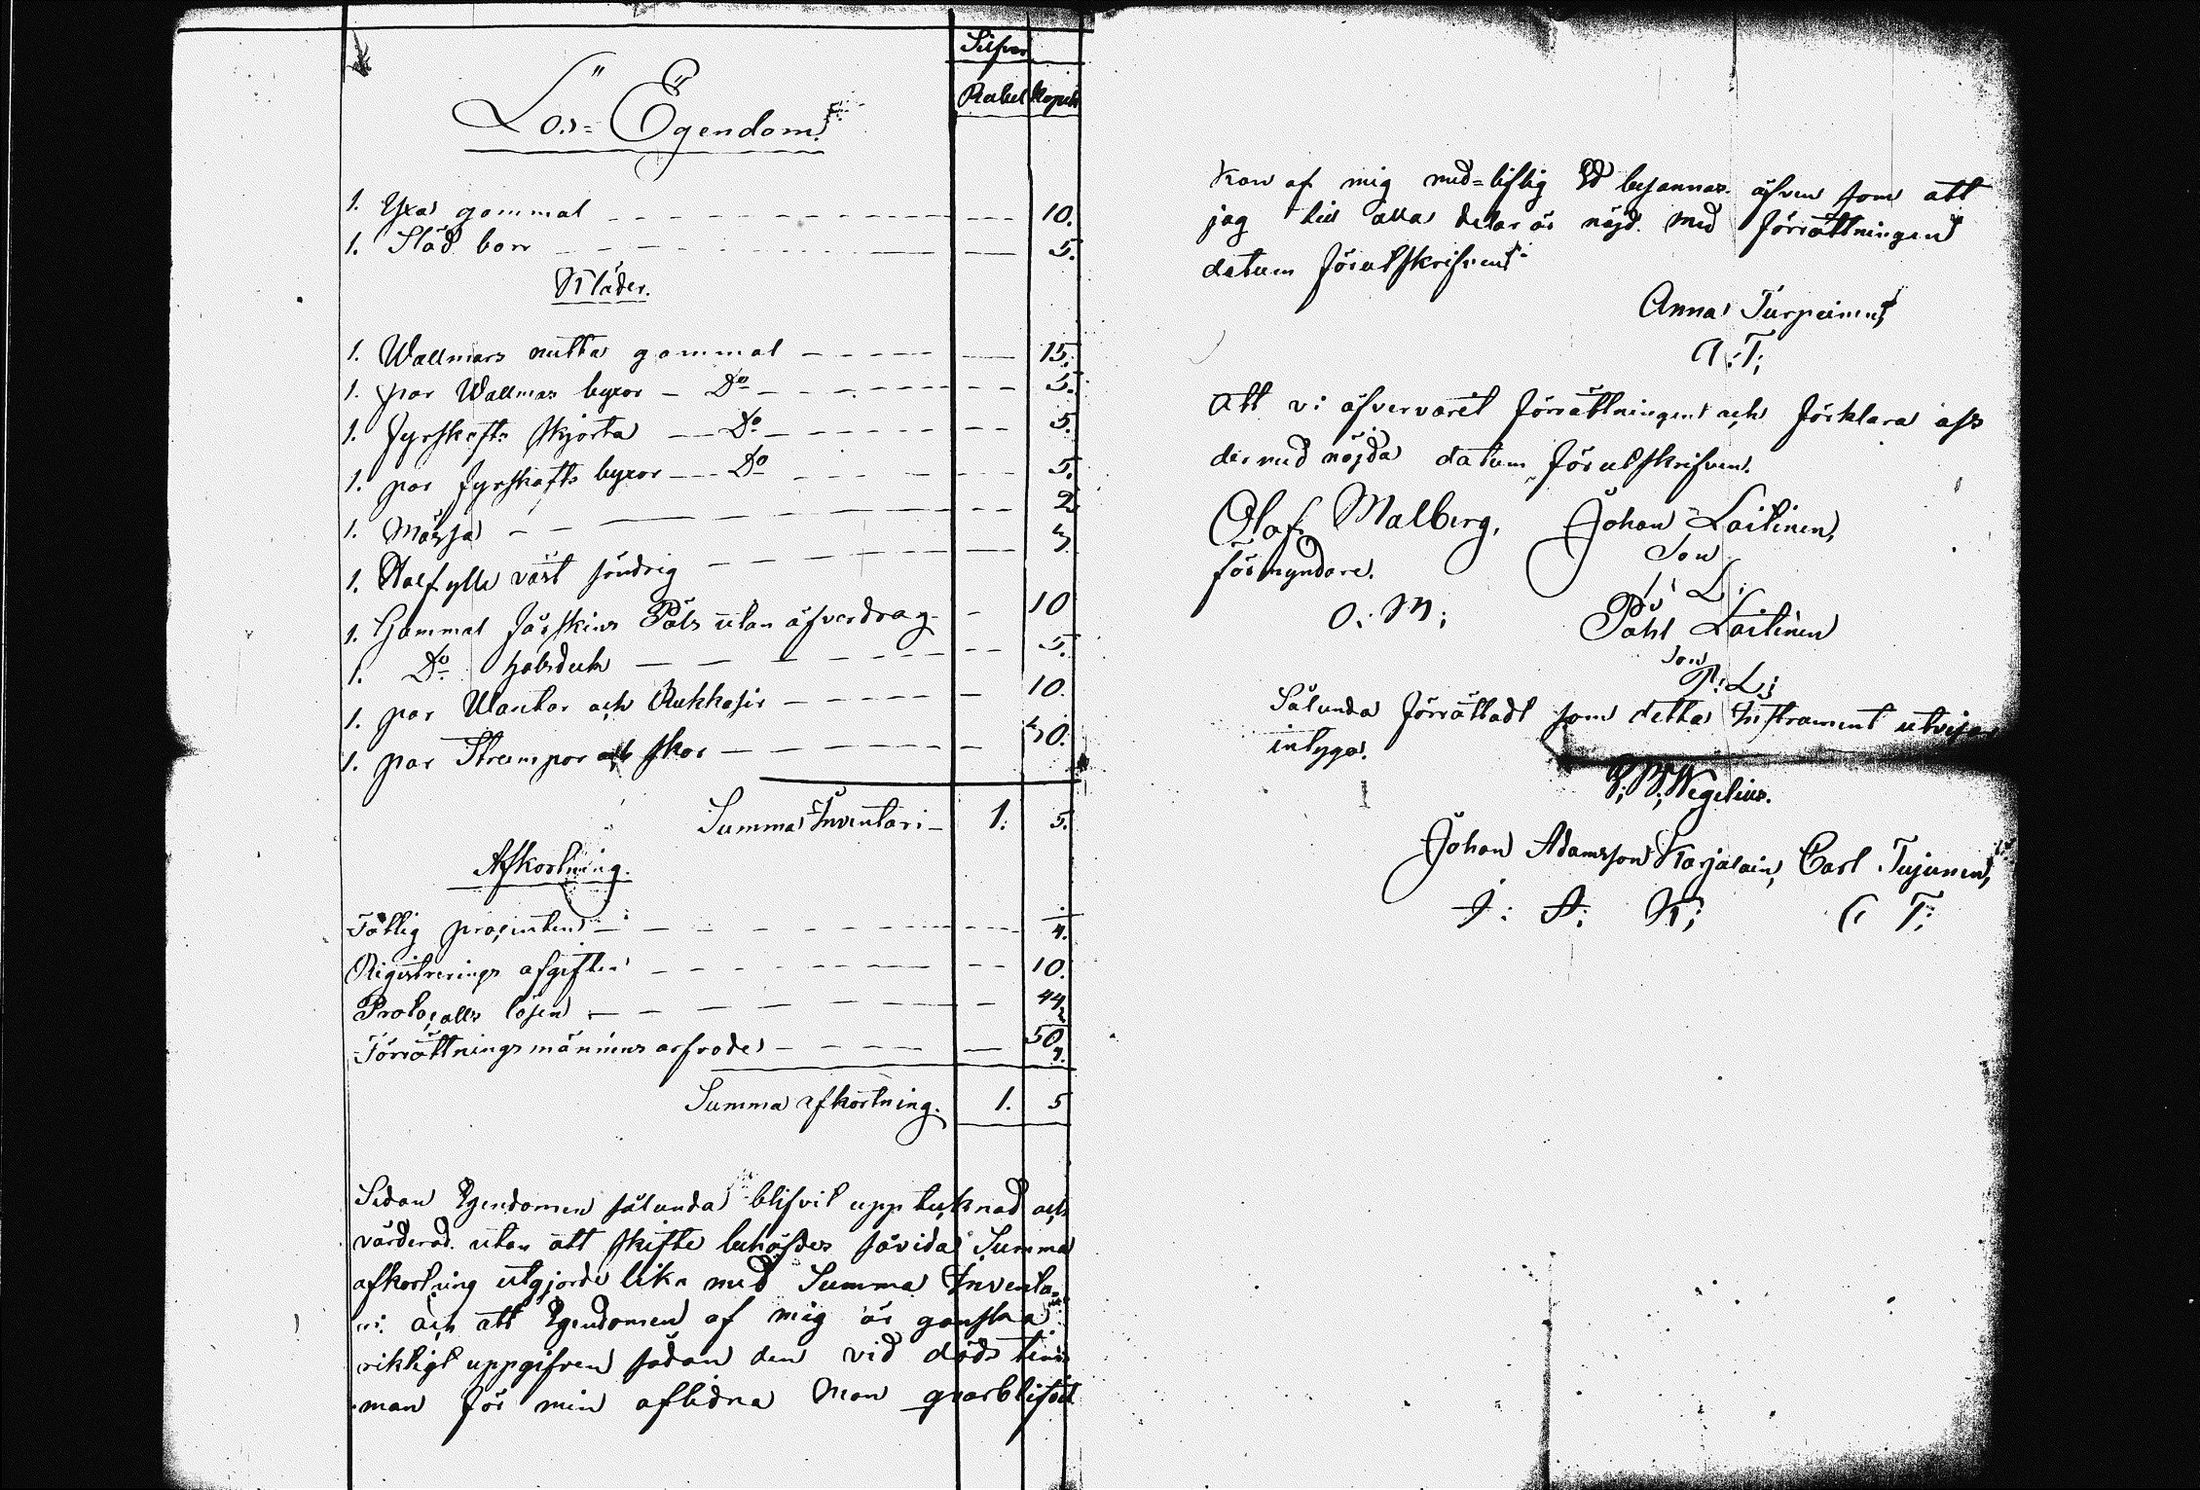 Silfver
Rubel Kopek
Lös= Egendom.
1. Yxa gammal 10.
1. Släd borr 5.
Kläder.
1. Wallmars mutta gammal 15.
1. par Wallmars byxor Do 5.
1. fyrskafts skjorta Do 5.
1. par fyrskafts byxor Do 5.
1. Mössa 2
1. Halfylle väst söndrig 3.
1. Gammal fårskins Päls utan öfverdrag 10
1. Do halsduk 5.
1. par Wantar och Rukkasir 10.
1. par Strumpor och skor 30.
Summa Inventari 1. 5.
Afkortning.
Fattig procenten
Registrerings afgiften 10.
Protocolls lösen 44
Förrättningsmännens arfvode 50
Summa afkortning. 1. 5
Sedan Egendomen sålunda blifvit upptecknad och
värderad utan att skifte behöfdes såvida Summa
afkortning utgjorde lika med Summa Inventa-
ri och att Egendomen af mig är ganska
riktigt uppgifven sådan den vid döds tim-
man för min aflidna Man qvarblifvit
Kan af mig med=liflig Ed besannas äfven som att
jag till alla delar är nöjd med förrättningen
datum förutskrifvent
Anna Turpeinen,
A: T;
Att vi öfvervarit förrättningen och förklara oss
dermed nöjda datum förutskrifven.
Olof Malberg, Johan Laitinen,
förmyndare. son
O: M; J: L;
Påhl Laitinen
son
P: L;
Sålunda förrättadt som detta Instrument utvisar
intyga.
Wegelius.
Johan Adamsson Karjalain, Carl Tujunen,
J: A: K; C T;